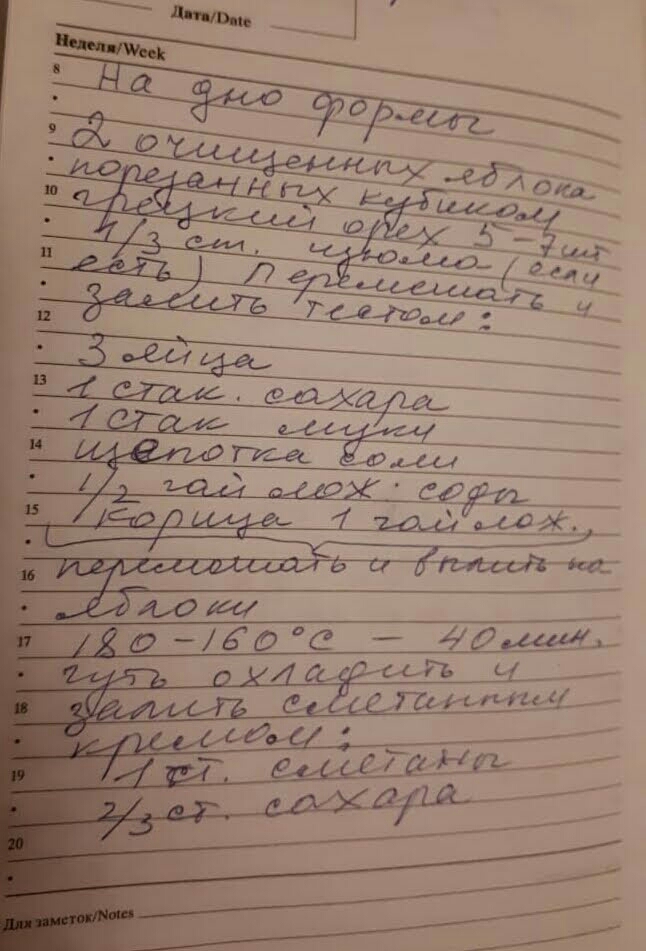 Дата/Date
Неделя/Week
8 На дно формы
9 2 очищенных яблока
порезанных кубиком
10 грецкий орех 5-7шт
1/3 ст. изюма (если
11 есть) Перемешать и
залить тестом:
12
3 яйца
13 1 стак. сахара
1 стак муки
14 щепотка соли
1/2 чай лож. соды
15 корица 1 чай лож.,
перемешать и вылить на
16 яблоки
17 180-160°С - 40 мин.
чуть охладить и
18 залить сметанным
кремом:
19 1 ст. сметаны
2/3 ст. сахара
20
Для заметок/Notes